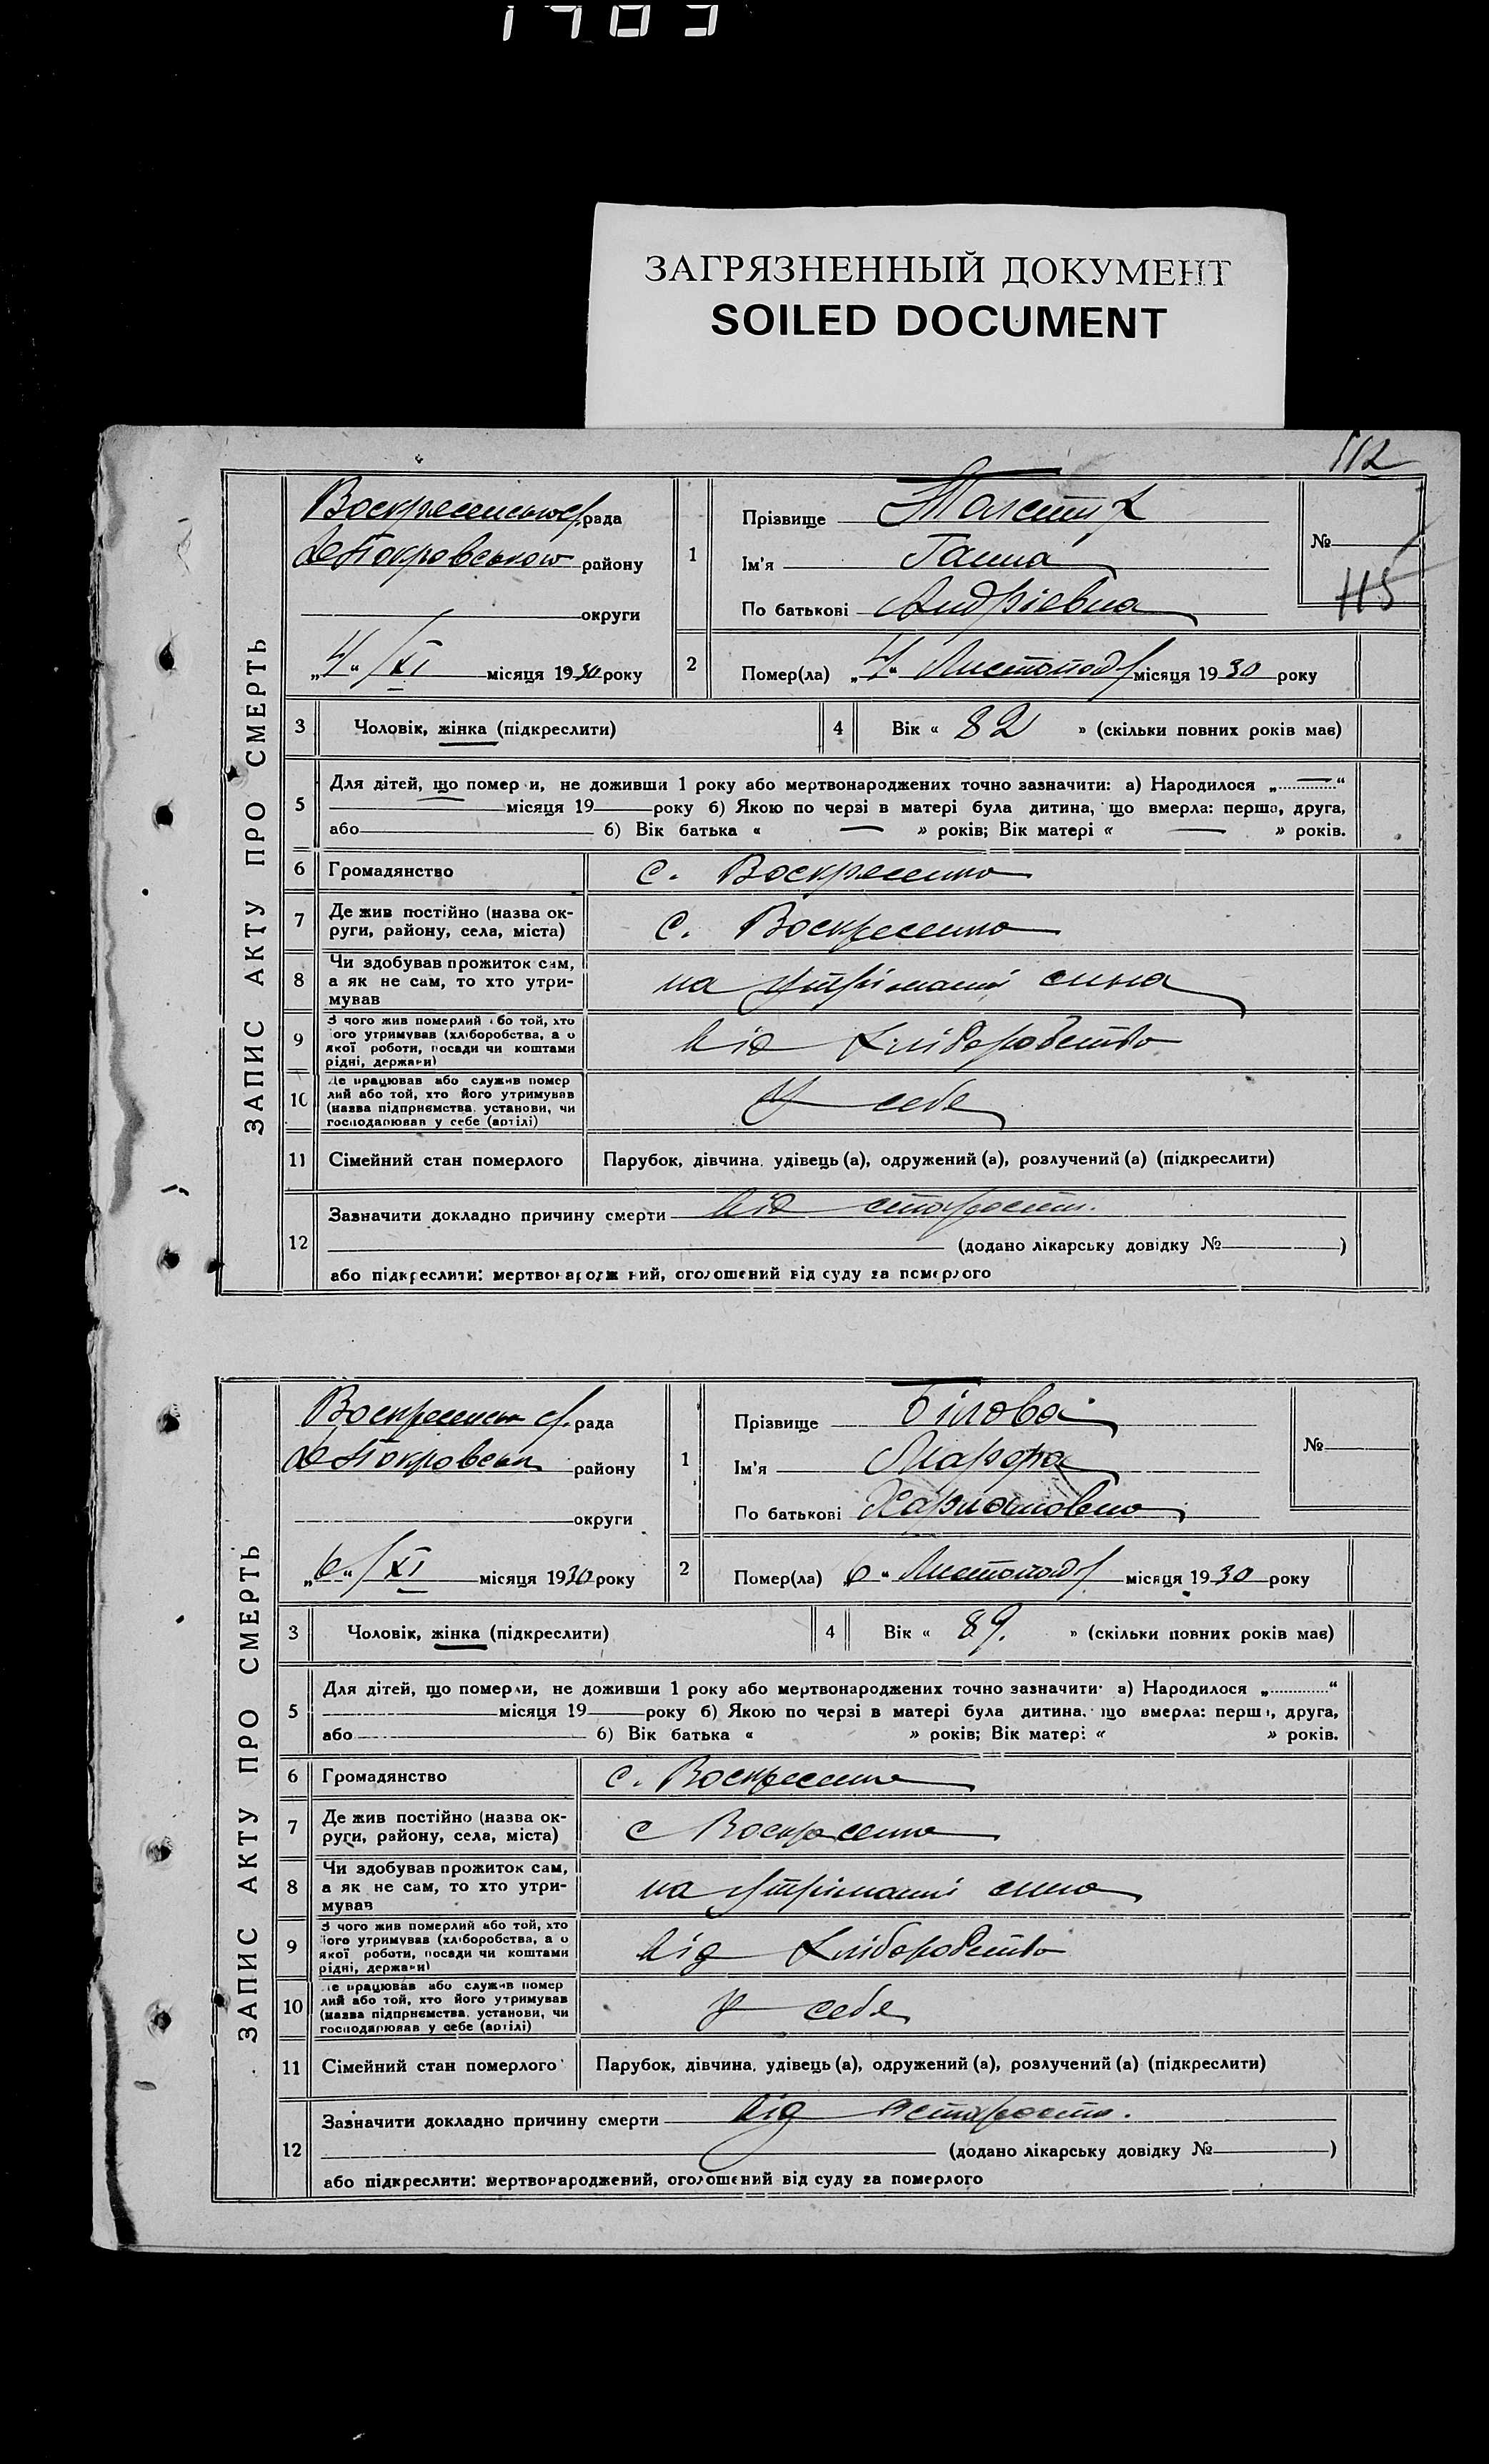 ЗАГРЯЗНЕННЫЙ ДОКУМЕНТ
SOILED DOCUMENT
112
ЗАПИС АКТУ ПРО СМЕРТЬ
рада
району
округи
„4“/XI місяця 1930 року
1
Прізвище Толстих
Ім'я Ганна
По батькові Андріевна
№
115
2
Помер(ла) „4“ Листопад місяця 1930 року
3 Чоловік, жінка (підкреслити)
4 Вік « 82 » (скільки повних років має)
5
Для дітей, що помер и, не доживши 1 року або мертвонароджених точно зазначити: а) Народилося „ “
місяця 19 року б) Якою по черзі в матері була дитина, що вмерла: перша, друга,
або б) Вік батька « — » років; Вік матері « — » років.
6 Громадянство с. Воскресенка
7
Де жив постійно (назва ок-
руги, району, села, міста)
с. Воскресенка
8
Чи здобував прожиток сам,
а як не сам, то хто утри-
мував
на утріманні сина
9
З чого жив померлий або той, хто
його утримував (хліборобства, а о
якої роботи, посади чи коштами
рідні, держави)
від хліборобства
10
Де працював або служив помер
лий або той, хто його утримував
(назва підприємства, установи, чи
господарював у себе (артілі)
У себе
11 Сімейний стан померлого Парубок, дівчина, удівець (а), одружений (а), розлучений (а) (підкреслити)
12
Зазначити докладно причину смерти від старости.
(додано лікарську довідку № )
або підкреслити: мертвонародж ний, оголошений від суду за померлого
ЗАПИС АКТУ ПРО СМЕРТЬ
рада
району
округи
„6“/XI місяця 1930 року
1
Прізвище Білова
Ім'я
По батькові
№
2
Помер(ла) „6“ Листопад місяця 1930 року
3 Чоловік, жінка (підкреслити)
4 Вік « 89. » (скільки повних років має)
5
Для дітей, що померли, не доживши 1 року або мертвонароджених точно зазначити: а) Народилося „ “
місяця 19 року б) Якою по черзі в матері була дитина, що вмерла: перша, друга,
або б) Вік батька « » років; Вік матері « » років.
6 Громадянство с. Воскресенка
7
Де жив постійно (назва ок-
руги, району, села, міста)
с Воскресенка
8
Чи здобував прожиток сам,
а як не сам, то хто утри-
мував
на утріманні сина
9
З чого жив померлий або той, хто
його утримував (хліборобства, а о
якої роботи, посади чи коштами
рідні, держави)
від хліборобства
10
Де працював або служив помер
лий або той, хто його утримував
(назва підприємства, установи, чи
господарював у себе (артілі)
У себе
11 Сімейний стан померлого Парубок, дівчина, удівець (а), одружений (а), розлучений (а) (підкреслити)
12
Зазначити докладно причину смерти від старости.
(додано лікарську довідку № )
або підкреслити: мертвонароджений, оголошений від суду за померлого